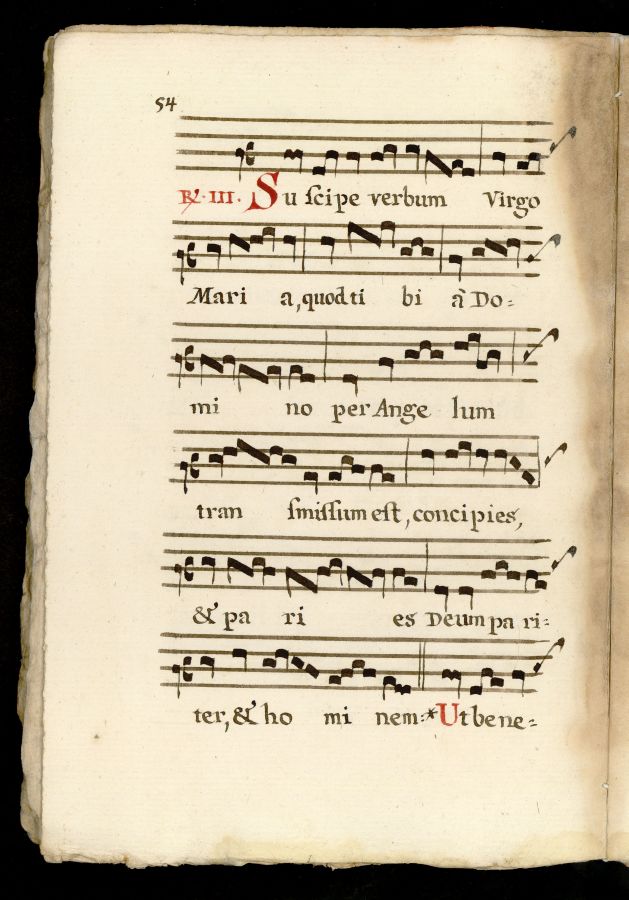 54
℟. III. Su scipe verbum Virgo
Mari a, quod ti bi à Do=
mi no per Ange lum
tran smissum est, concipies,
& pa ri es Deum pa ri=
ter, & ho mi nem: * Ut bene=